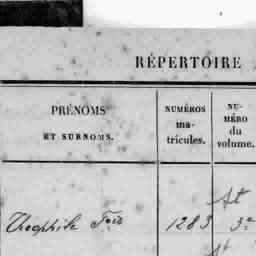 RÉPERTOIRE
PRÉNOMS
ET SURNOMS.
NUMÉROS
ma-
tricules.
NU-
MÉRO
du
volume.
Théophile 1283 3e